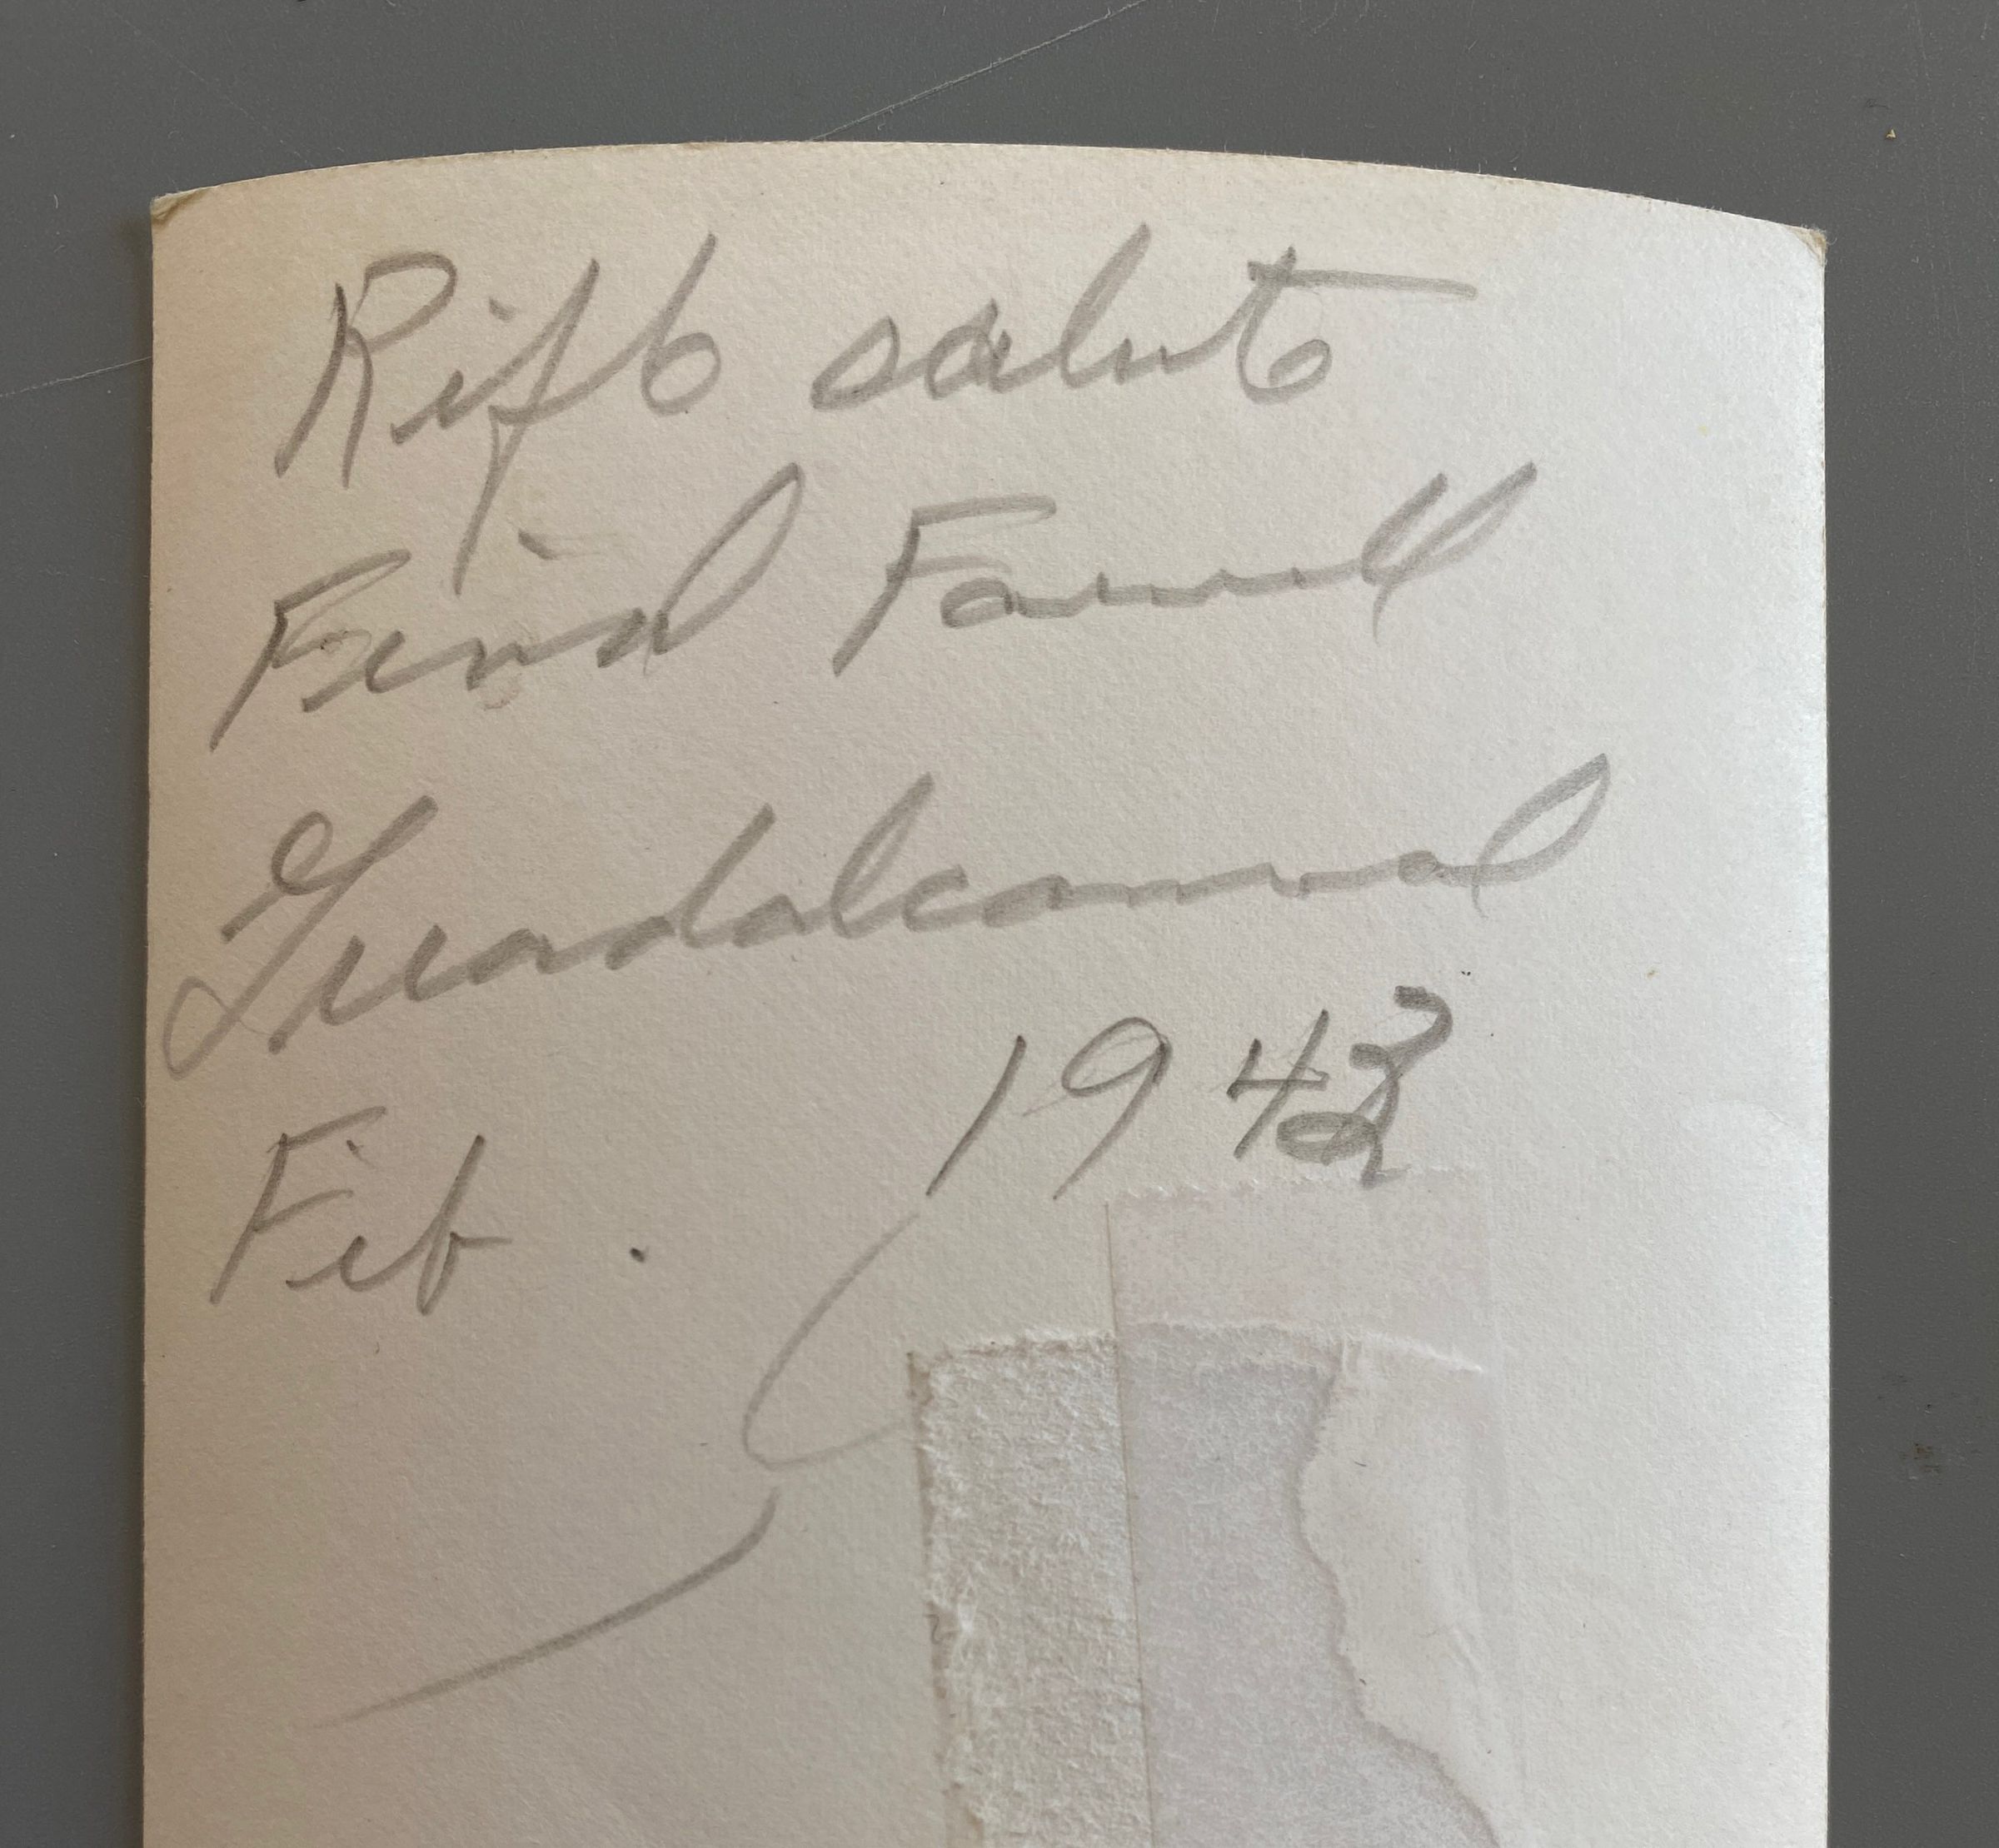 Rifle salute
Final Farwell
Guadalcanal
Feb. 1943